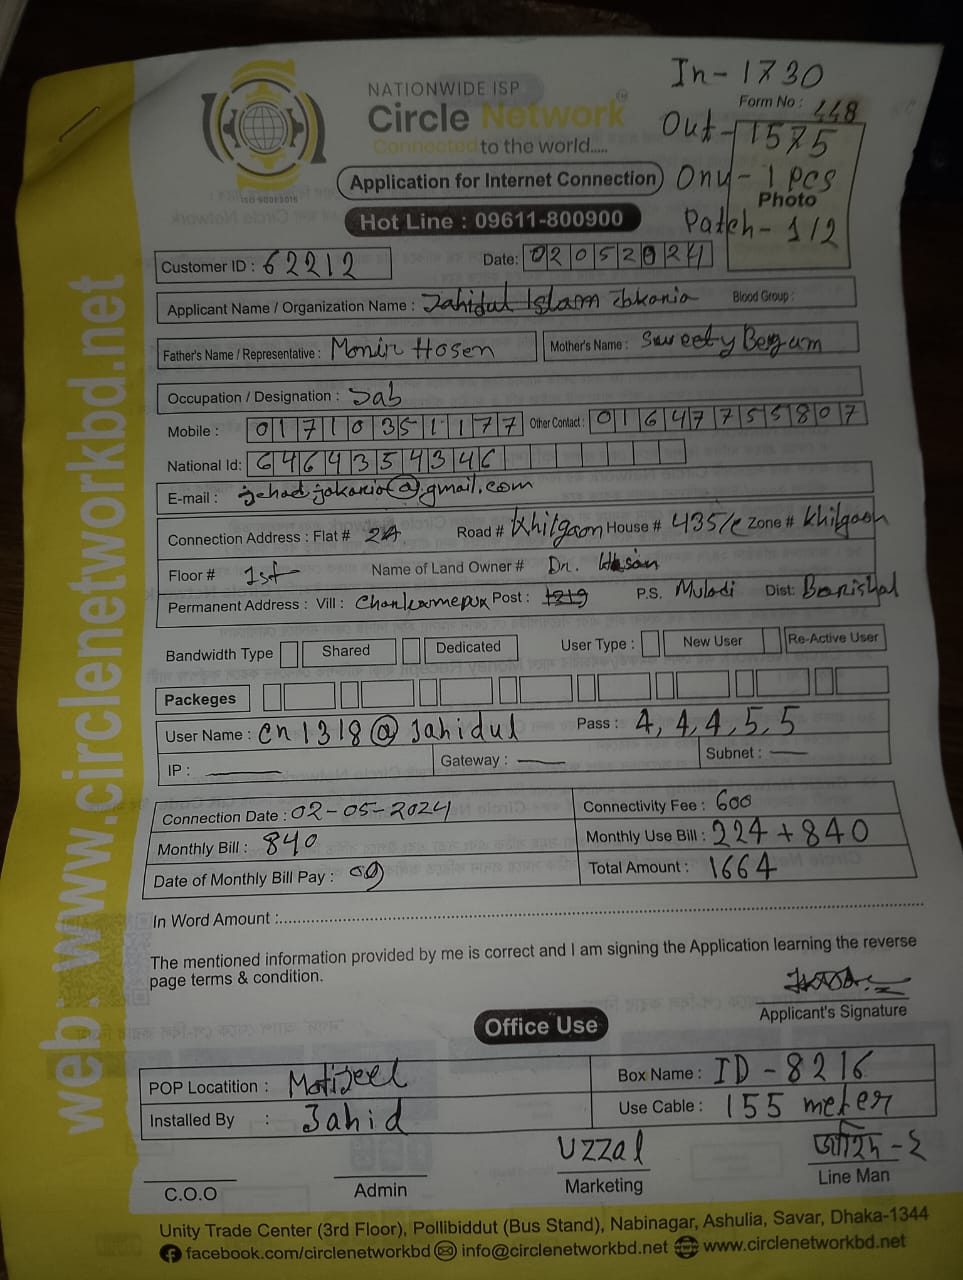 In - 1730
NATIONWIDE ISP
Circle Network
Form No : 448
Connected to the world.....
Out - 1575
Application for Internet Connection
Onu - 1 pcs
Photo
ISO 9001:2015
Hot Line : 09611-800900
Patch - 1/2
Customer ID : 62212
Date: 02052024
Applicant Name / Organization Name : Jahidul Islam Zakaria Blood Group :
Father's Name / Representative : Monir Hosen Mother's Name : Sweety Begum
Occupation / Designation : Job
Mobile : 01710351177 Other Contact : 01647755807
National Id: 6464354346
E-mail : jehad.jakaria@gmail.com
Connection Address : Flat # 2A Road # Khilgaon House # 435/C Zone # Khilgaon
Floor # 1st Name of Land Owner # Dr. Hasan
Permanent Address : Vill : Post : 1219 P.S. Muladi Dist: Barishal
Bandwidth Type Shared Dedicated User Type : New User Re-Active User
Packeges
User Name : cn1318@Jahidul Pass : 4,4,4,5,5
IP : Gateway : Subnet :
Connection Date : 02-05-2024 Connectivity Fee : 600
Monthly Bill : 840 Monthly Use Bill : 224 + 840
Date of Monthly Bill Pay : 09 Total Amount : 1664
In Word Amount :
The mentioned information provided by me is correct and I am signing the Application learning the reverse
page terms & condition.
Applicant's Signature
Office Use
POP Locatition : Motijeel Box Name : ID - 8216
Installed By : Jahid Use Cable : 155 meter
C.O.O Admin Uzzal Marketing জাহিদ - ২ Line Man
Unity Trade Center (3rd Floor), Pollibiddut (Bus Stand), Nabinagar, Ashulia, Savar, Dhaka-1344
facebook.com/circlenetworkbd info@circlenetworkbd.net www.circlenetworkbd.net
web: www.circlenetworkbd.net